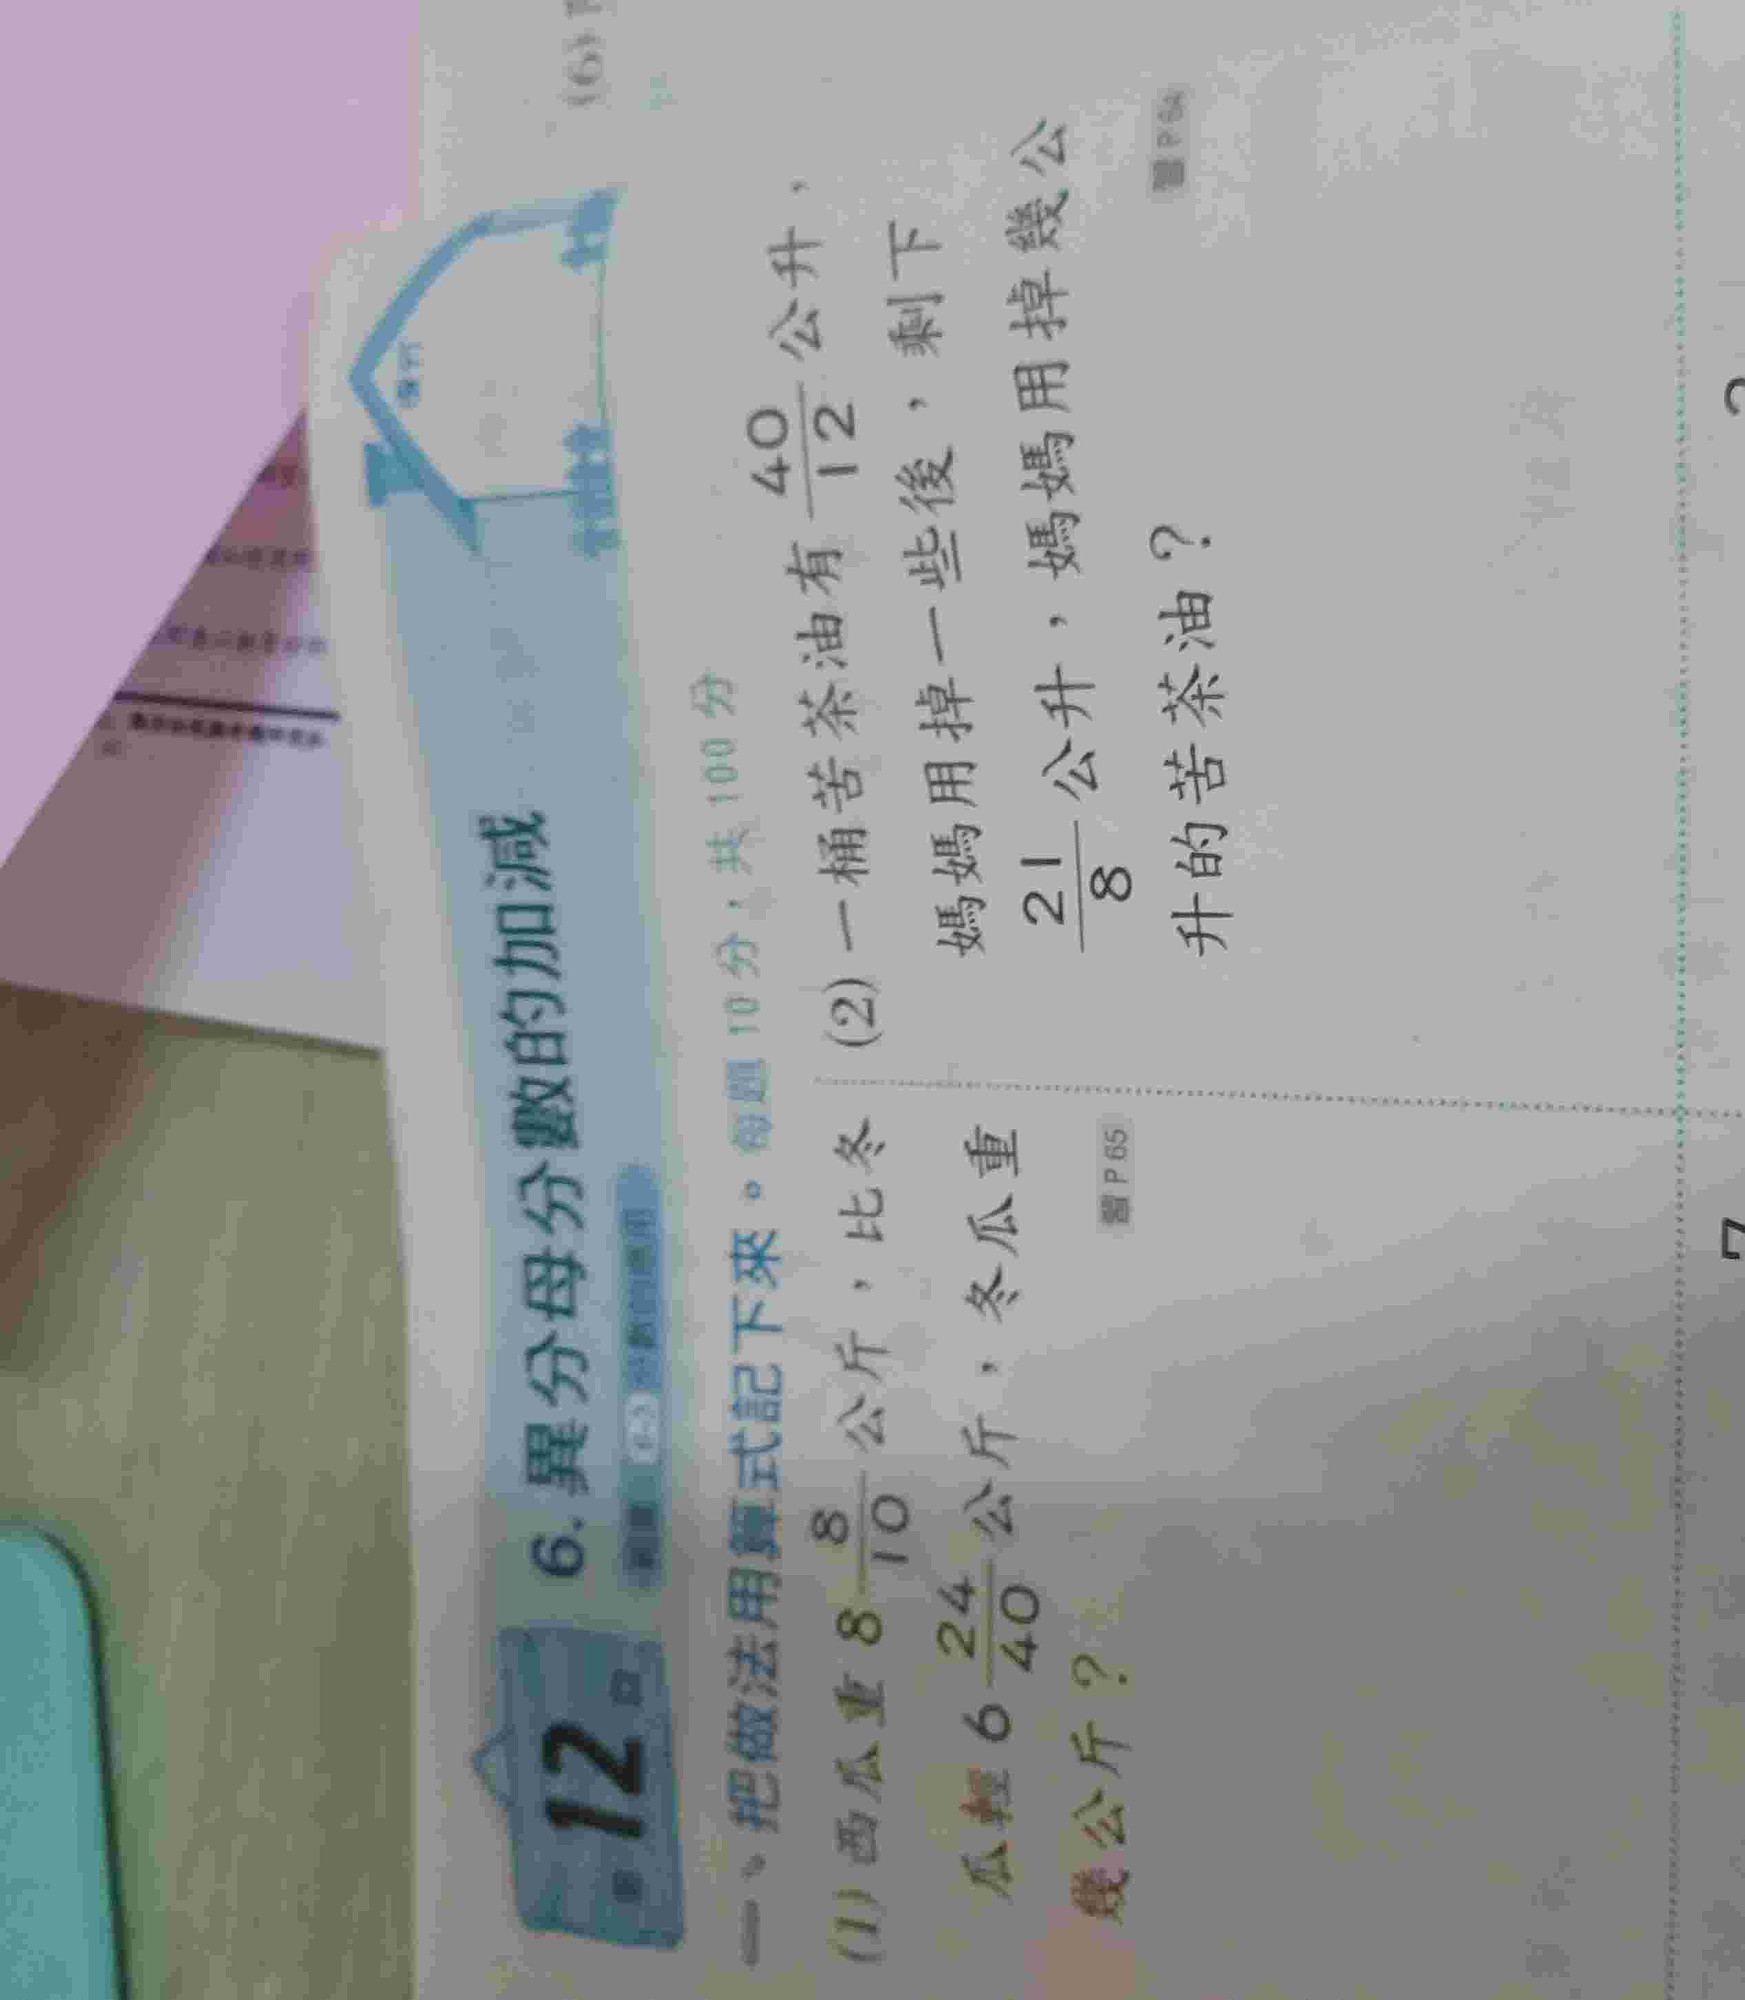 12
6. 異分母分數的加減
一、把做法用算式記下來。每題 10 分,共 100 分
(1) 西瓜重 8 8/10 公斤,比冬
瓜輕 6 24/40 公斤,冬瓜重
幾公斤?
習 P 65
(2) 一桶苦茶油有 40/12 公升,
媽媽用掉一些後,剩下
21/8 公升,媽媽用掉幾公
升的苦茶油?
習 P 64
(6)